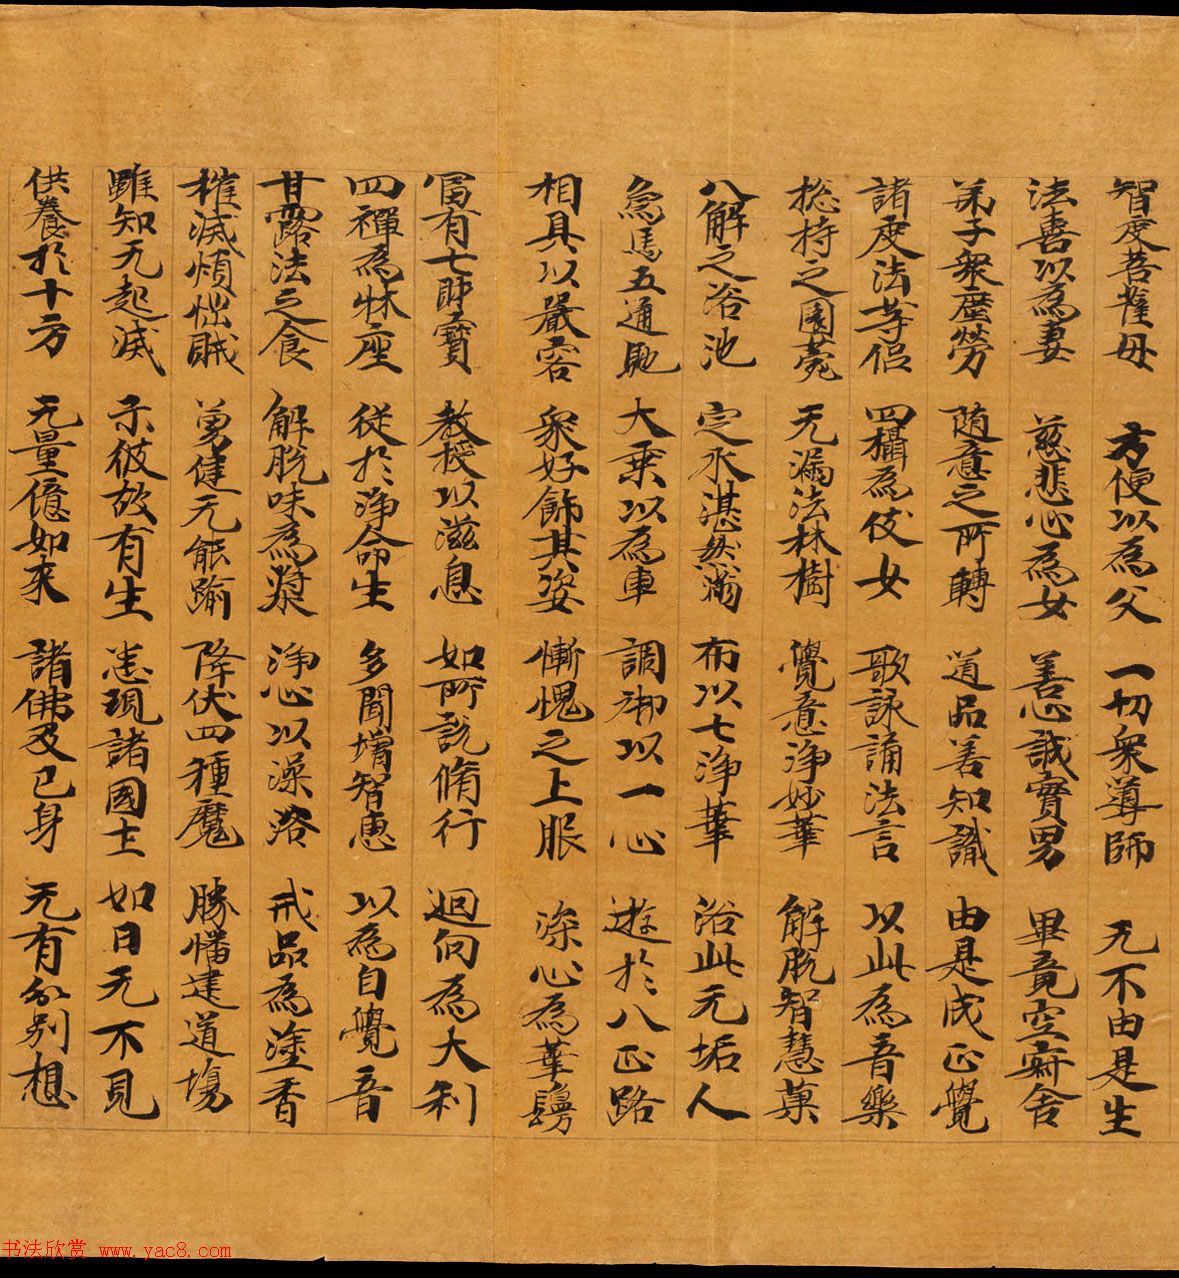 智度菩薩母 方便以為父 一切衆導師 无不由是生
法喜以為妻 慈悲心為女 善心誠實男 畢竟空寂舍
弟子衆塵勞 随意之所轉 道品善知識 由是成正覺
諸度法等侣 四攝為伎女 歌詠誦法言 以此為音樂
揔持之園菀 无漏法林樹 覺意淨妙華 解脱智慧菓
八解之浴池 定水湛然滿 布以七淨華 浴此无垢人
馬五通馳 大乗以為車 調御以一心 遊於八正路
相具以嚴容 衆好飾其姿 慚愧之上服 深心為華鬘
冨有七財寶 教授以滋息 如所說脩行 迴向為大利
四禪為牀座 従於淨命生 多聞増智恵 以為自覺音
甘露法之食 解脱味為漿 淨心以澡浴 戒品為塗香
摧滅煩惱賊 勇健无能踰 降伏四種魔 勝幡建道場
雖知无起滅 示彼故有生 悉現諸國土 如日无不見
供養於十方 无量億如来 諸佛及己身 无有分别想
书法欣赏 www.yac8.com